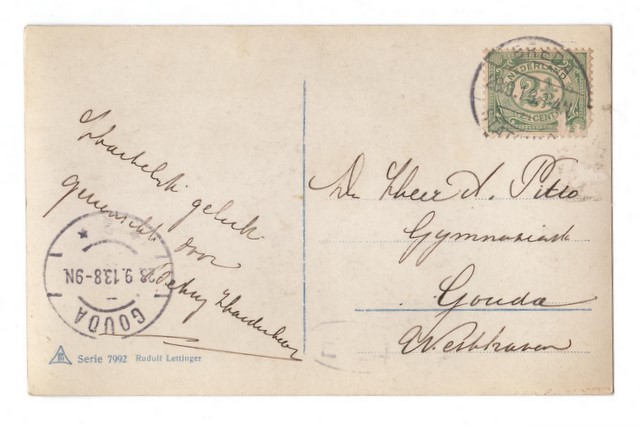 Hartelijk geluk
gewenscht door
De Heer A.
Gymnasiast
Gouda
Westhaven
BREDA
NEDERLAND
2½
CENT
28.9.13.8-9N.
GOUDA
Serie 7992 Rudolf Lettinger